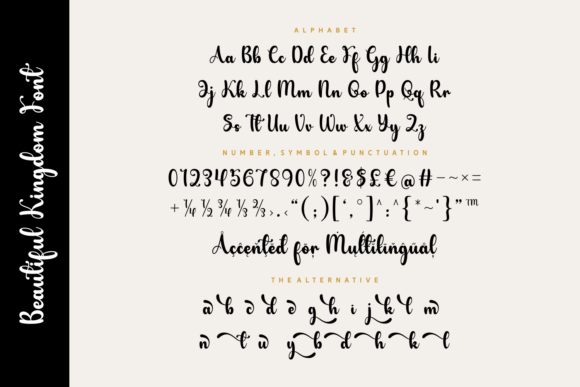 Beautiful Kingdom Font
ALPHABET
Aa Bb Cc Dd Ee Ff Gg Hh Ii
Jj Kk Ll Mm Nn Oo Pp Qq Rr
Ss Tt Uu Vv Ww Xx Yy Zz
NUMBER, SYMBOL & PUNCTUATION
01234567890%?!&$£€@#−~×=
+¼½¾⅓⅔›.‹“(;)[‘,°]^:^{*~'}”™
Accented for Multilingual
THE ALTERNATIVE
a b c d e g h i j k l m
n t w y b d h k l